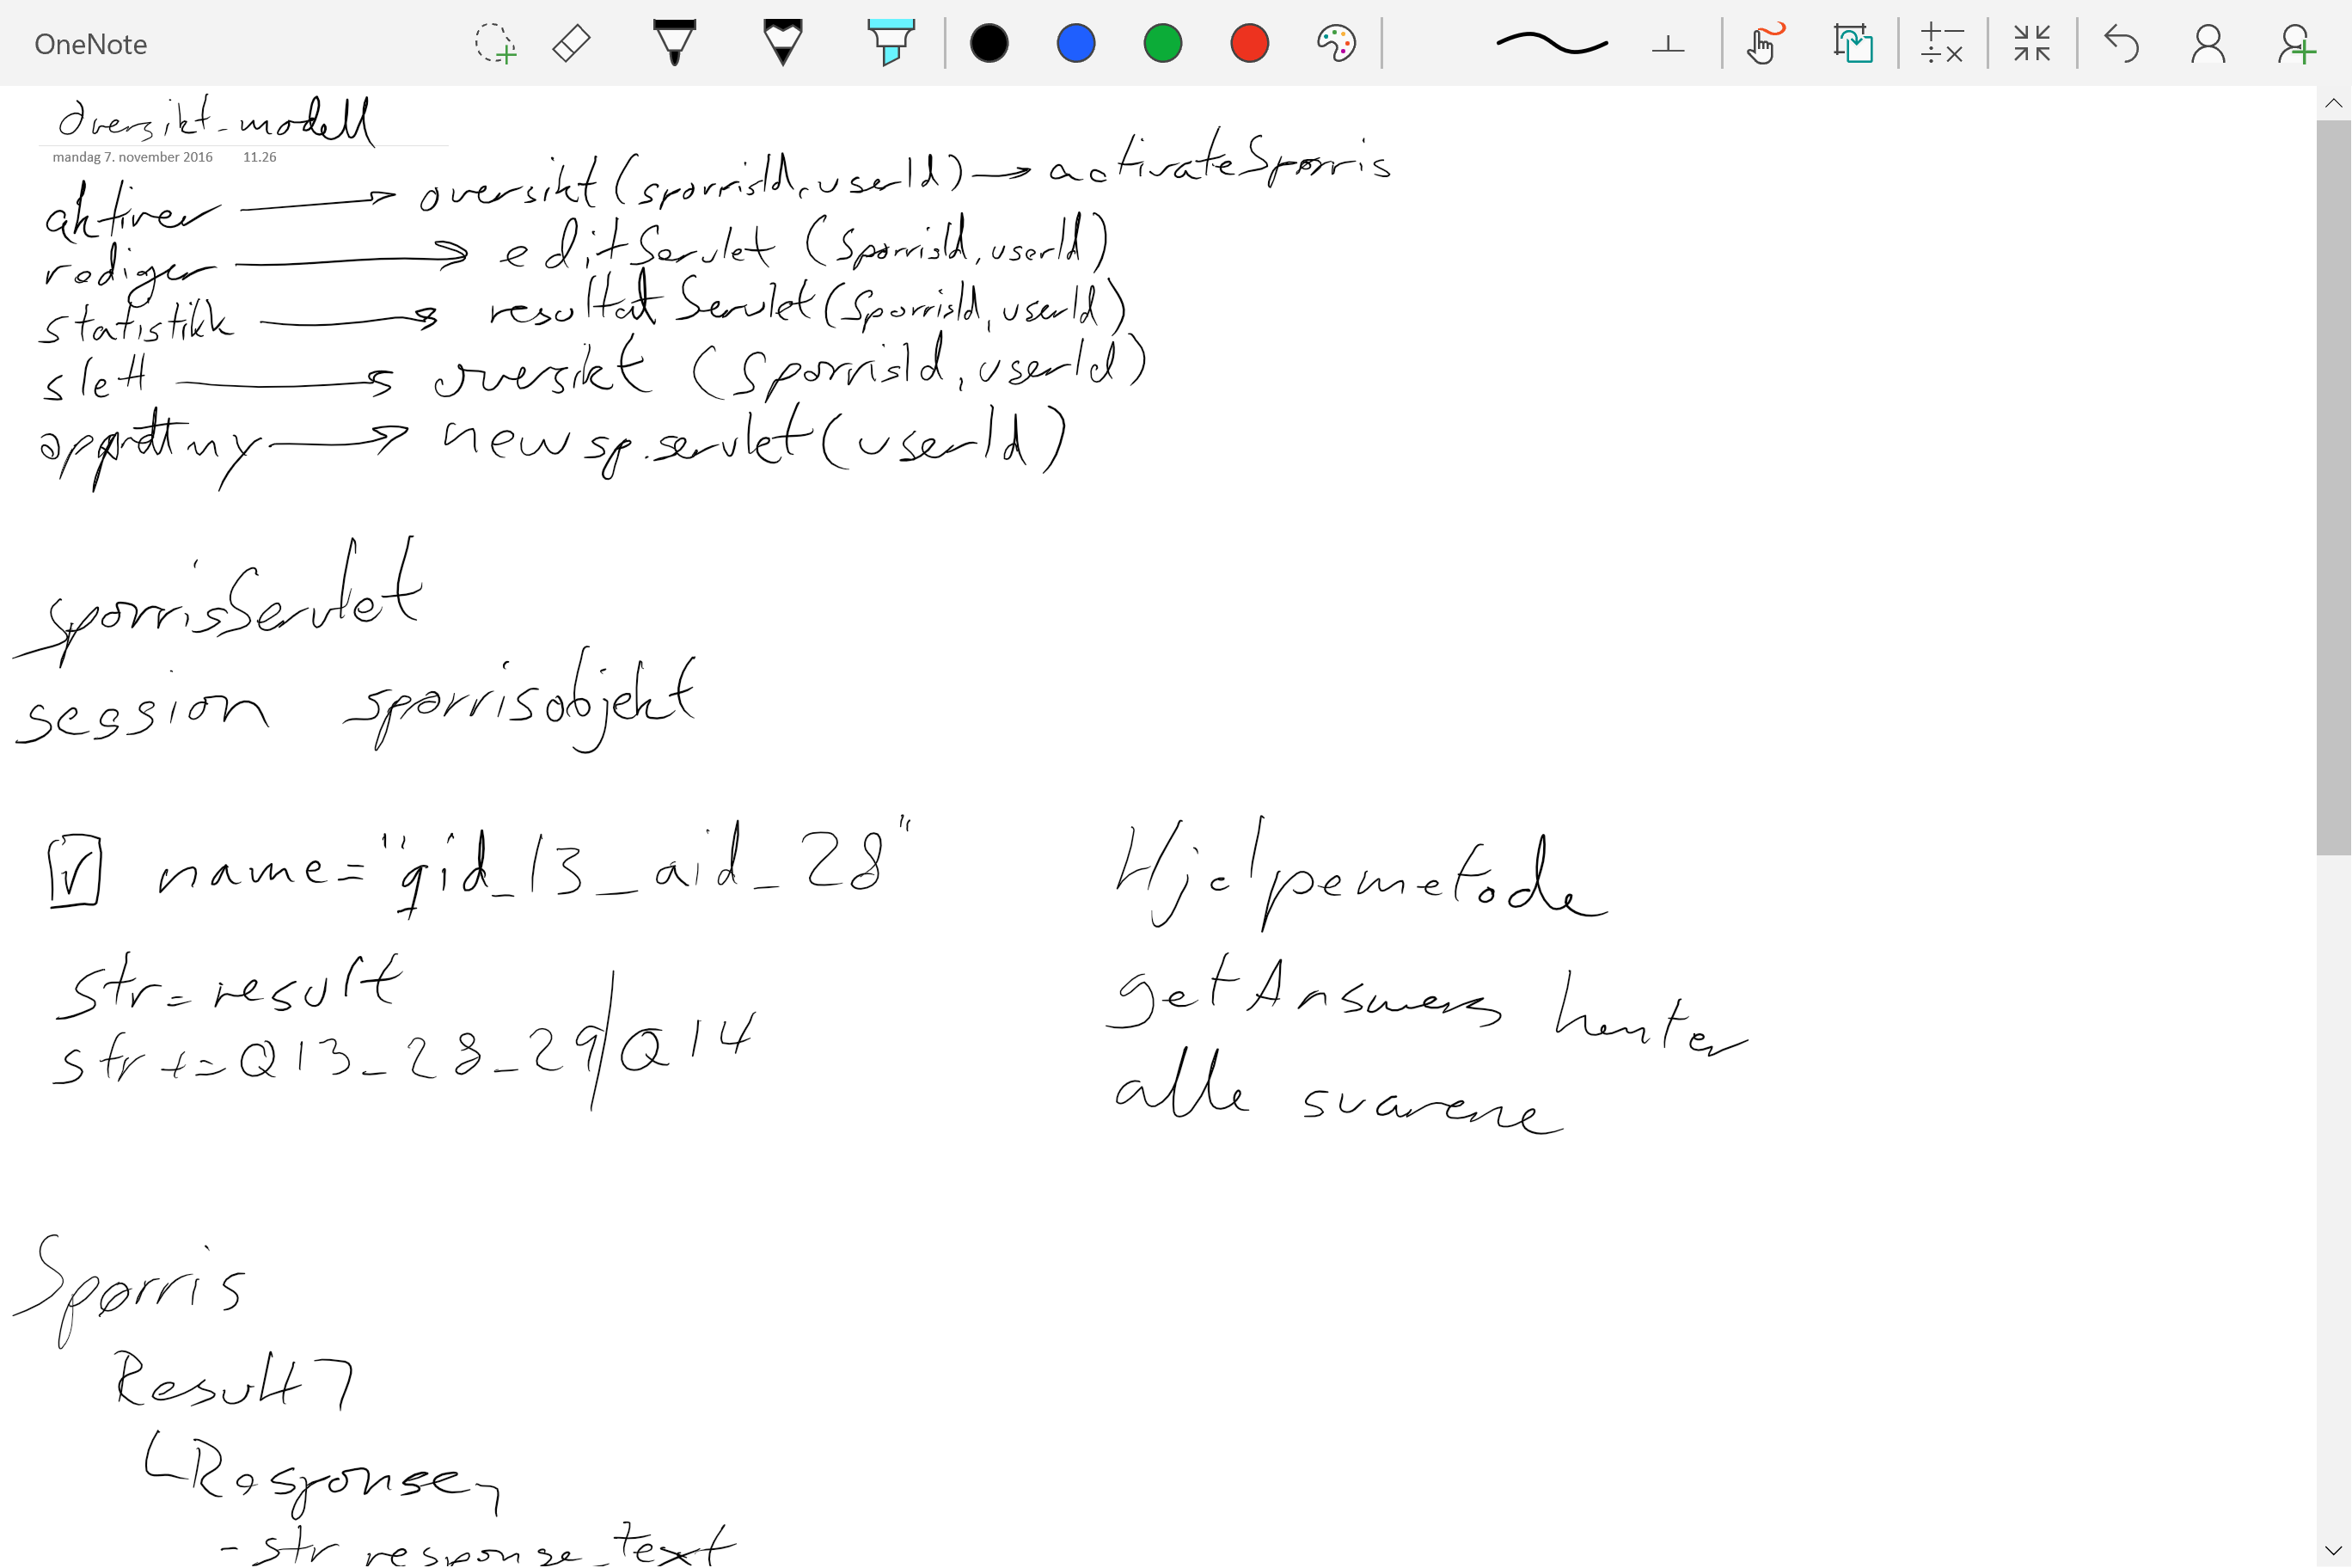 OneNote
Oversikt-modell
mandag 7. november 2016 11.26
aktiver → oversikt(sporrisId, userId) → activateSporris
rediger → editServlet (SporrisId, userId)
statistikk → resultatServlet(SporrisId, userId)
slett → oversikt (SporrisId, userId)
opprett ny → new sp.servlet(userId)
sporrisServlet
session sporrisobjekt
☑ name="qid_13_aid_28"
str=result
str+=Q13_28_29/Q14
Hjelpemetode
getAnswers henter
alle svarene
Sporris
Result
Response
- str response_text